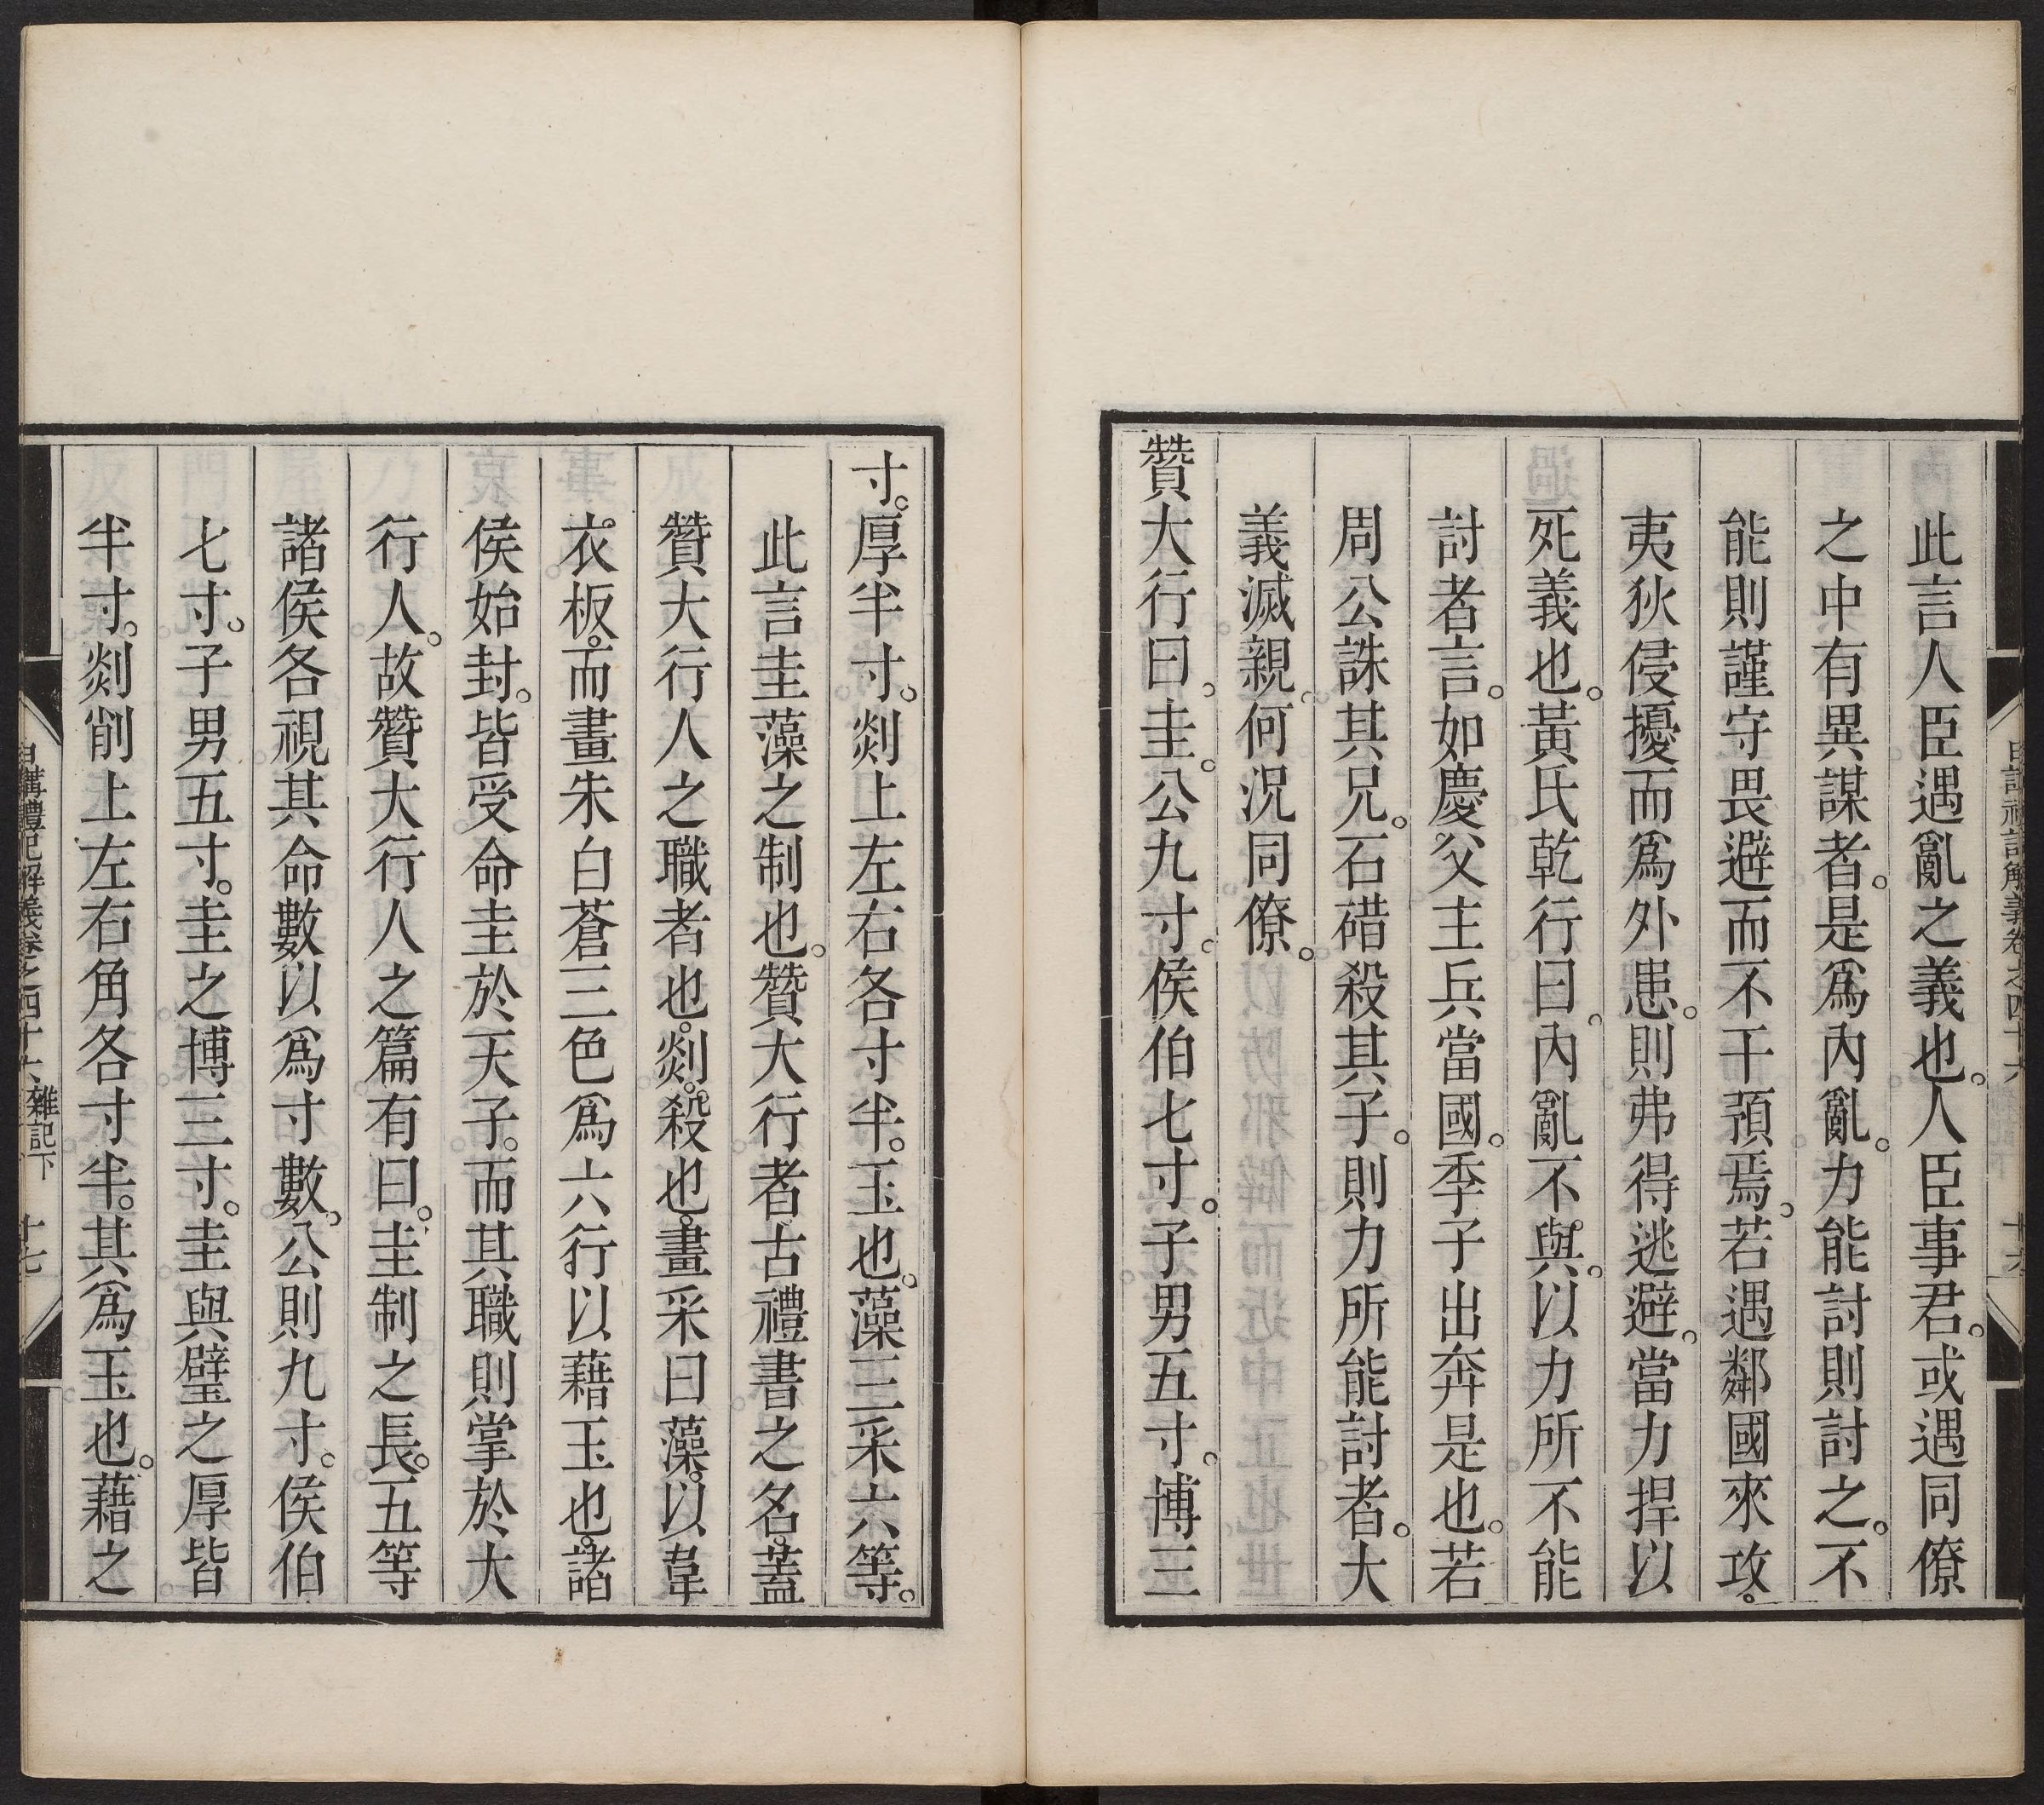 此言人臣遇亂之義也。人臣事君。或遇同僚
之中有異謀者。是爲內亂。力能討則討之。不
能則謹守畏避而不干預焉。若遇鄰國來攻。
夷狄侵擾而爲外患。則弗得逃避。當力捍以
死義也。黃氏乾行曰。內亂不與。以力所不能
討者言。如慶父主兵當國。季子出奔是也。若
周公誅其兄。石碏殺其子。則力所能討者。大
義滅親。何況同僚。
贊大行曰。圭。公九寸。侯伯七寸。子男五寸。博三
寸。厚半寸。剡上左右各寸半。玉也。藻三采六等。
此言圭藻之制也。贊大行者古禮書之名。蓋
贊大行人之職者也。剡。殺也。畫采曰藻。以韋
衣板。而畫朱白蒼三色爲六行以藉玉也。諸
侯始封。皆受命圭於天子。而其職則掌於大
行人。故贊大行人之篇有曰。圭制之長。五等
諸侯各視其命數以爲寸數。公則九寸。侯伯
七寸。子男五寸。圭之博三寸。圭與璧之厚皆
半寸。剡削上左右角各寸半。其爲玉也。藉之
日講禮記解義卷之四十六 雜記下 十七